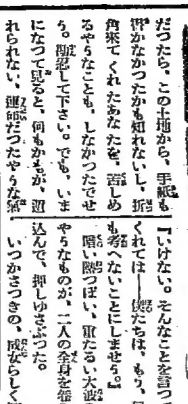 だつたら、この土地から、手紙も
書かなかつたかも知れないし、折
角來てくれたあなたを、苦しめ
るやうなことも、しなかつたでせ
う。勘忍して下さい。でも、いま
になつて見ると、何もかもが、遁
れられない、運命だつたやうな氣
『いけない。そんなことを言つて
くれては――僕たちは、もう、何
も考へないことにしませう。』
暗い熱つぽい、重たるい大波の
やうなものが、二人の全身を卷き
込んで、押しゆさぶつた。
いつかさつきの、處女らしく